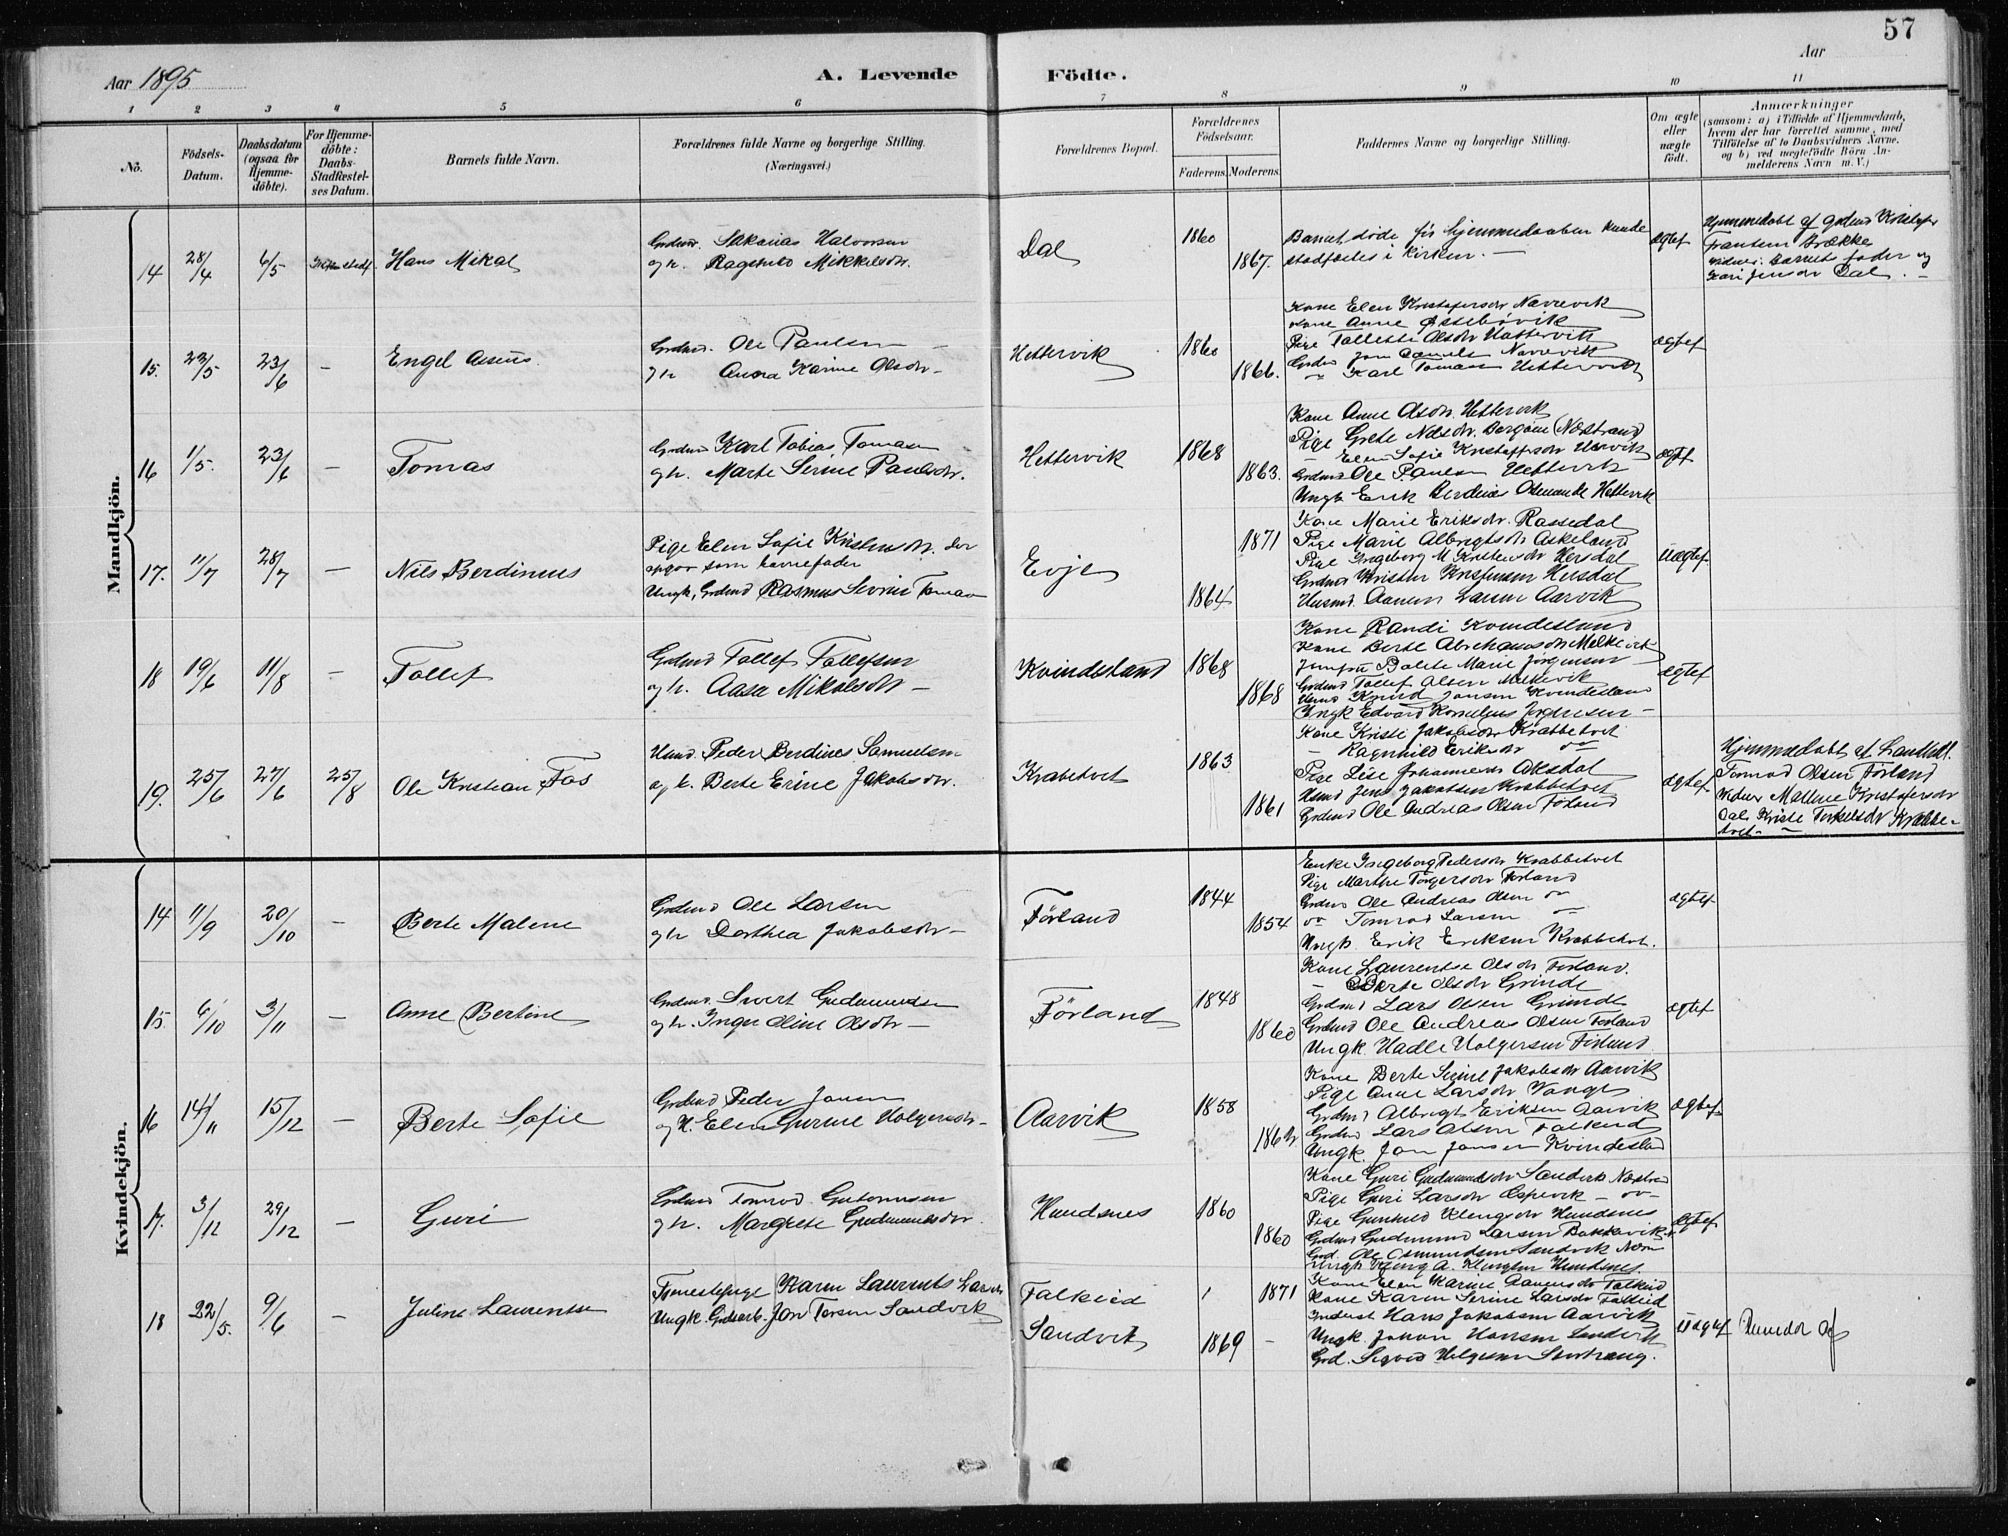 57
Aar 1895
A. Levende Födte.
Aar
1 2 3 4 5 6 7 8 9 10 11
No.
Födsels-
Datum.
Daabsdatum
(ogsaa for
Hjemme-
döbte).
For Hjemme-
döbte:
Daabs-
Stadfæstel-
ses Datum.
Barnets fulde Navn.
Forældrenes fulde Navne og borgerlige Stilling.
(Næringsvei.)
Forældrenes Bopæl.
Forældrenes
Födselsaar.
Faderens. Moderens.
Faddernes Navne og borgerlige Stilling.
Om ægte
eller
uægte
födt.
Anmærkninger
(saasom: a) i Tilfælde af Hjemmedaab,
hvem der har forrettet samme, med
Tilföielse af to Daabsvidners Navne.
og b) ved uægtefödte Börn An-
melderens Navn m. V.)
Mandkjön.
14 28/4 6/5 Hans Mikal
Grdmd. Sakarias Halvorsen
og h. Ragnhild Mikkelsdr.
Dal 1860 1867.
Barnet döde för hjemmedaaben kunde
stadfæstes i Kirken. —
ægtef
Hjemmedöbt af Grdmd
Vidner: Barnets fader og
Kari Jensdr Dal. —
15. 22/5 23/6 — Engel Asseus
Grdmd. Ole Paulsen —
og h Anna Karine Olsdr. —
Hettervik 1860 1866.
Kone Elen Kristofersdr Nævrevik
Kone Anne
Pige Tollette Olsdr Hættervik
Grdmd Jon Nævrevik
" Karl Tomasen Hettervik
ægtef
16 1/5. 23/6 — Tomas
Grdmd Karl Tobias Tomasen
og h. Marte Serine Paulsdr.
Hettervik 1868 1863.
Kone Anne Olsdr. Hettervik
Pige Grete Nilsdr. (Nedstrand)
— Elen Sofie Kristoffersdr
Grdmd Ole Paulsen Hettervik
Ungk Erik Berdines Hettervik
ægtef
17. 11/7 28/7 — Nils Berdinius
Pige Elen Sofie Kristensdr. der
opgav som barnefader
Ungk, Grdmd Rasmus Tomasen
Evje 1871 1864
Kone Marie Eriksdr. Rassedal
Pige Marie Albrigtsdr Askeland
Pige Ingeborg M Kristensdr Hersdal
Grdmd Kristen Kristensen Hersdal
Husmd. Aanen Larsen Aarvik
Uægtef
18 19/6 11/8 — Tollef
Grdmd Tollef Tollefsen
og h. Aasa Mikalsdr —
Kvindesland 1868 1868
Kone Randi Kvindesland
Kone Berte Abrahamsdr
Jomfru Bolette Marie Jörgensen
Grdmd Tollef Olsen
Husmd Knud Jonsen Kvindesland
Ungk Edvard Kornelius Jörgensen —
ægtef
19. 25/6 27/6 25/8 Ole Kristian Fos
Husmd Peder Berdines Samuelsen
og h. Berte Erine Jakobsdr.
Krabetvet 1863 1861
Kone Kristi Jakobsdr Krabbetvet
— Ragnhild Eriksdr "
Pige Lise Johannesdr Aksdal
Husmd Jens Jakobsen Krabbetvet
Grdmd Ole Andreas Olsen Förland
ægtef
Hjemmedöbt af
Tomrad Olsen Förland
Vidner Malene Kristofersdr
Dal, Kristi Torkelsdr Krabbe-
tvet. —
Kvindekjön.
14 11/9 20/10 — Berte Malene
Grdmd Ole Larsen
og h Dorthea Jakobsdr —
Förland 1844 1854
Enke Ingeborg Pedersdr Krabbetvet
Pige Marthe Torgersdr Förland
Grdmd Ole Andreas Olsen "
" Tomrad Larsen "
Ungk. Erik Eriksen Krabbetvet.
ægtef
15. 6/10 3/11 — Anne Bertine
Grdmd. Sivert Gudmundsen
og h. Inger Oline Olsdr —
Förland 1848 1860
Kone Laurentse Olsdr Förland.
— Berte Olsdr Grinde
Grdmd Lars Olsen Grinde
Grdmd Ole Andreas Olsen Förland
Ungk. Hadle Holgersen Förland
ægtef
16 14/11 15/12 — Berte Sofie
Grdmd Peder Jonsen
og h. Elen Gurine Holgersdr —
Aarvik 1858
Kone Berte Serine Jakobsdr Aarvik
Pige Anne Larsdr Vange
Grdmd Albrigt Eriksen Aarvik
Grdmd Lars Olsen Falkeid
Ungk. Jon Jonsen Kvindesland
ægtef
17. 3/12 29/12 — Guri
Grdmd Tomrad Guttormsen
og h. Margrete Gudmundsdr.
Hundsnes 1860 1860
Kone Guri Gudmundsdr Sandvik Nedstrand
Pige Guri Larsdr Espevik — " —
Pige Gunhild Klengsdr Hundsnes
Grdmd Gudmund Larsen Bakkevik
Grd. Ole Osmundsen Sandvik
Ungk Kleng A. Klengsen Hundsnes.
ægtef
18 22/5. 9/6 — Juline Laurentse
Tjenestepige Karen Laurentse Larsdr
Ungk. Grdarb. Jon Torsen Sandvik
Falkeid
Sandvik
1871 1869 —
Kone Elen Karine Aanensdr Falkeid
Kone Karen Serine Larsdr Falkeid
Hans Jakobsen Aarvik
Ungk. Johan Hansen Sandvik
Grd. Sigvard Helgesen
Uægtef